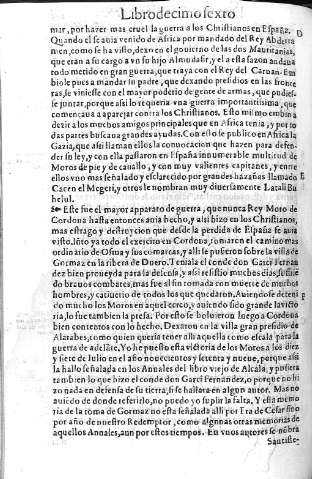 Libro decimo sexto
mar, por hazer mas cruel la guerra a los Christianos en España.
Quando el se auia venido de Africa por mandado del Rey Abderra
men, como se ha visto, dexo en el gouierno de las dos Mauritanias,
que eran a su cargo a vn su hijo Almudafir, y el a esta sazon andaua
todo metido en gran guerra, que traya con el Rey del Caruan. Em
biole pues a mandar su padre, que dexando presidios en las fronte
ras, se viniesse con el mayor poderio de gente de armas, que pudies-
se juntar, porque assi lo requeria vna guerra importantissima, que
començaua a aparejar contra los Christianos. Esto mismo embio a
dezir a los muchos amigos principales que en Africa tenia, y por to
das partes buscaua grandes ayudas. Con esto se publico en Africa la
Gazia, que assi llaman ellos la conuocacion que hazen para defen-
der su ley, y con ella passaron en España innumerable multitud de
Moros de pie y de cauallo, y con muy valientes capitanes, y entre
ellos vno mas señalado y esclarecido por grandes hazañas llamado
Cacen el Megeri, y otros le nombran muy diuersamente Latali Bu
helul.
Este fue el mayor apparato de guerra, que nunca Rey Moro de
Cordoua hasta entonces auia hecho, y assi hizo en los Christianos,
mas estrago y destruycion que desde la perdida de España se auia
visto. Iūto ya todo el exercito en Cordoua, tomaron el camino mas
ordinario de Osma y sus comarcas, y alli se pusieron sobre la villa de
Gormaz en la ribera de Duero. Teniala el conde don Garci Fernan
dez bien proueyda para la defensa, y assi resistio muchos dias, sufriē
do brauos combates, mas fue al fin tomada con muerte de muchos
hombres, y catiuerio de todos los que quedaron. Auiendose deteni
do mucho los Moros en aquel cerco, y auiendo sido grande la victo
ria, lo fue tambien la presa. Por esto se boluieron luego a Cordoua
bien contentos con lo hecho. Dexaron en la villa gran presidio de
Alarabes, como quien queria tener alli aquella como escala para la
guerra de adelāte. Yo he puesto esta victoria de los Moros a los diez
y siete de Iulio en el año nouecientos y setenta y nueue, porque assi
la hallo señalada en los Annales del libro viejo de Alcala, y pusiera
tambien lo que hizo el conde don Garci Fernandez, o porque no hi
zo nada en defensa de su tierra, si se hallara en algun autor. Mas no
auiēdo de donde referirlo, no puedo yo suplir la falta. Y esta memo
ria de la toma de Gormaz no esta señalada alli por Era de Cesar sino
por año de nuestro Redemptor, como algunas otras memorias de
aquellos Annales, aun por estos tiempos. En vnos autores se nōbra
Santiste-